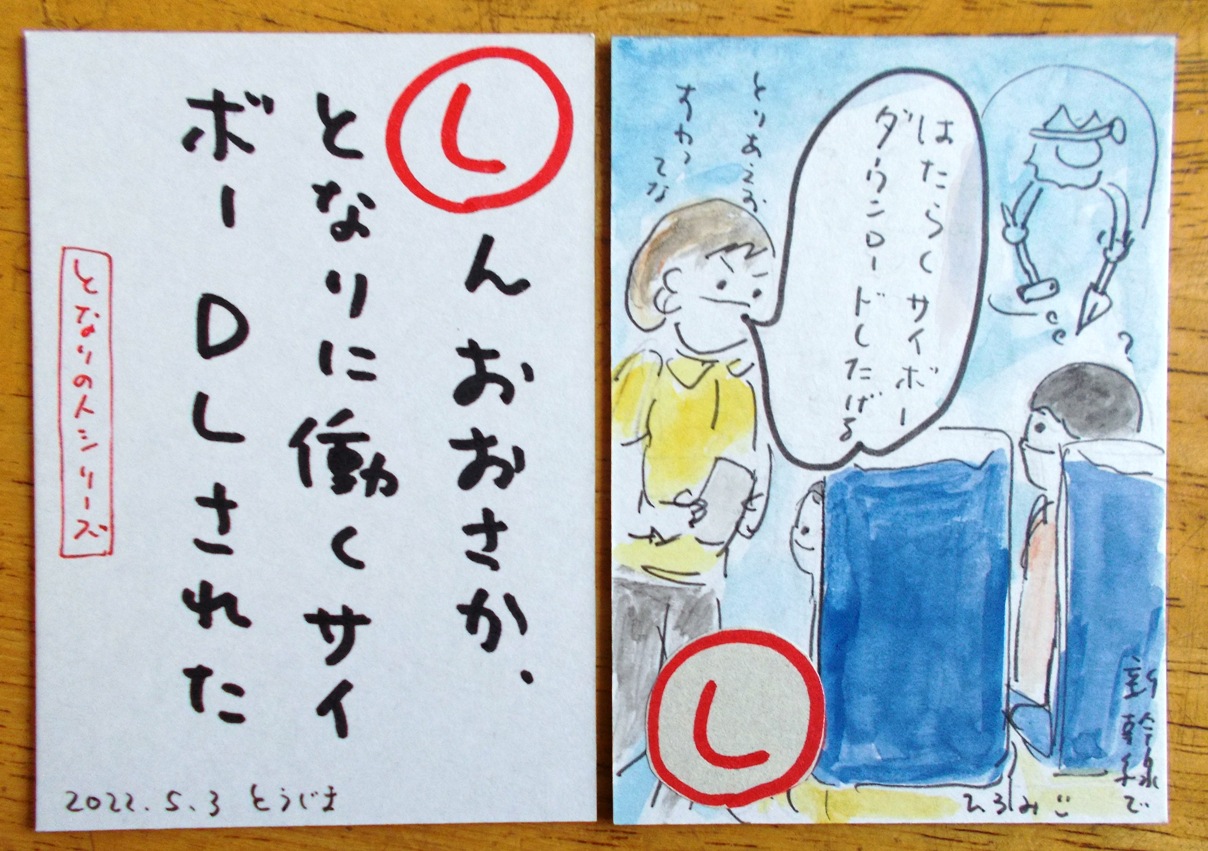 しんおおさか、
となりに働くサイ
ボーDLされた
となりの人シリーズ
2022.5.3 とうじま
はたらくサイボー
ダウンロードしたげる
とりあえず
すわってな
し
新幹線で
ひろみご